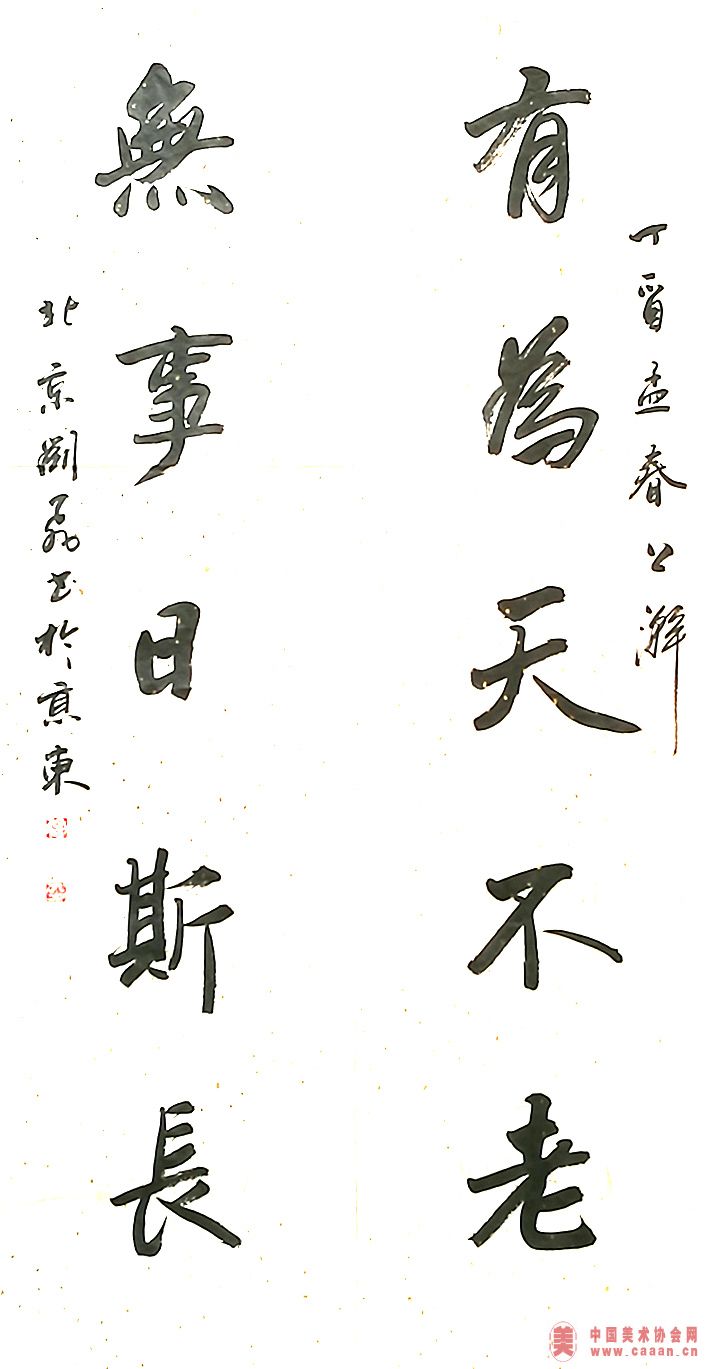 丁酉孟春公澥
有為天不老
無事日斯長
北京劉磊书於京東
中国美术协会网
www.caaan.cn